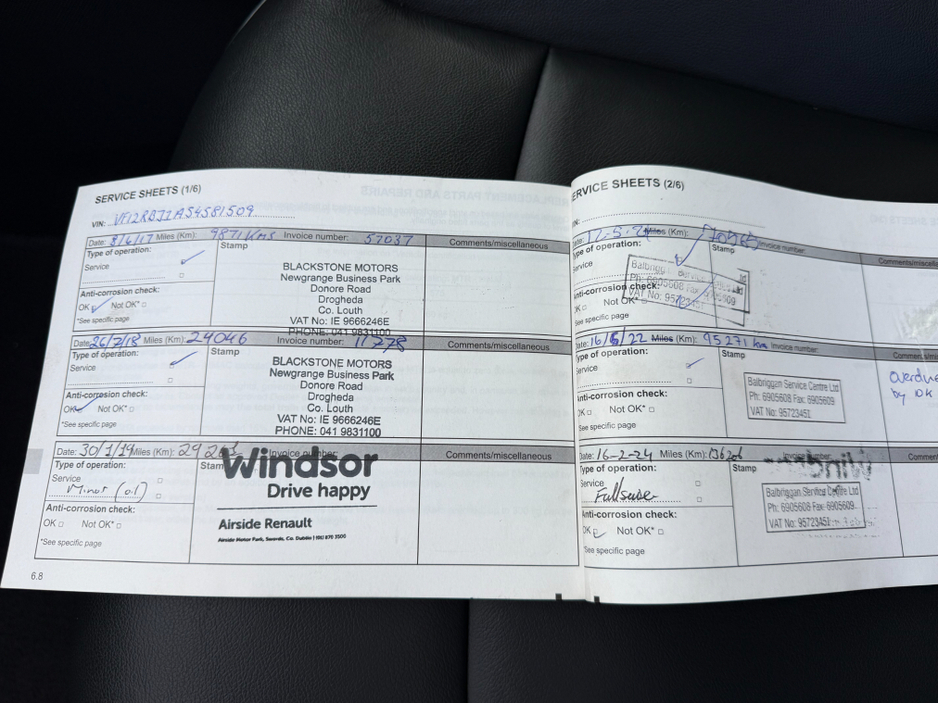 SERVICE SHEETS (1/6)
VIN: VF12RBJ1A54581509
Date: 8/6/17 Miles (Km): 9871 KMS Invoice number: 57037 Comments/miscellaneous
Type of operation:
Service
Stamp
BLACKSTONE MOTORS
Newgrange Business Park
Donore Road
Drogheda
Co. Louth
VAT No: IE 9666246E
PHONE: 041 9831100
Anti-corrosion check:
OK Not OK*
*See specific page
Date: 26/2/18 Miles (Km): 24046 Invoice number: 11778 Comments/miscellaneous
Type of operation:
Service
Stamp
BLACKSTONE MOTORS
Newgrange Business Park
Donore Road
Drogheda
Co. Louth
VAT No: IE 9666246E
PHONE: 041 9831100
Anti-corrosion check:
OK Not OK*
*See specific page
Date: 30/1/19 Miles (Km): Invoice number: Comments/miscellaneous
Type of operation:
Service
Minor (oil)
Stamp
Windsor
Drive happy
Airside Renault
Airside Motor Park, Swords, Co. Dublin
Anti-corrosion check:
OK Not OK*
*See specific page
6.8
ERVICE SHEETS (2/6)
Miles (Km): Invoice number: Comments/miscella
Type of operation:
Service
Stamp
Anti-corrosion check:
OK Not OK*
*See specific page
Date: 16/5/22 Miles (Km): 95271 km Invoice number:
Type of operation:
Service
Stamp
Balbriggan Service Centre Ltd
Ph: 6905608 Fax: 6905609
VAT No: 95723451
Overdue
by 10K
Anti-corrosion check:
Not OK*
*See specific page
Date: 16-2-24 Miles (Km): 136206
Type of operation:
Service
Full service
Stamp
Balbriggan Service Centre Ltd
Ph: 6905608 Fax: 6905609
VAT No: 95723451
Anti-corrosion check:
OK Not OK*
*See specific page